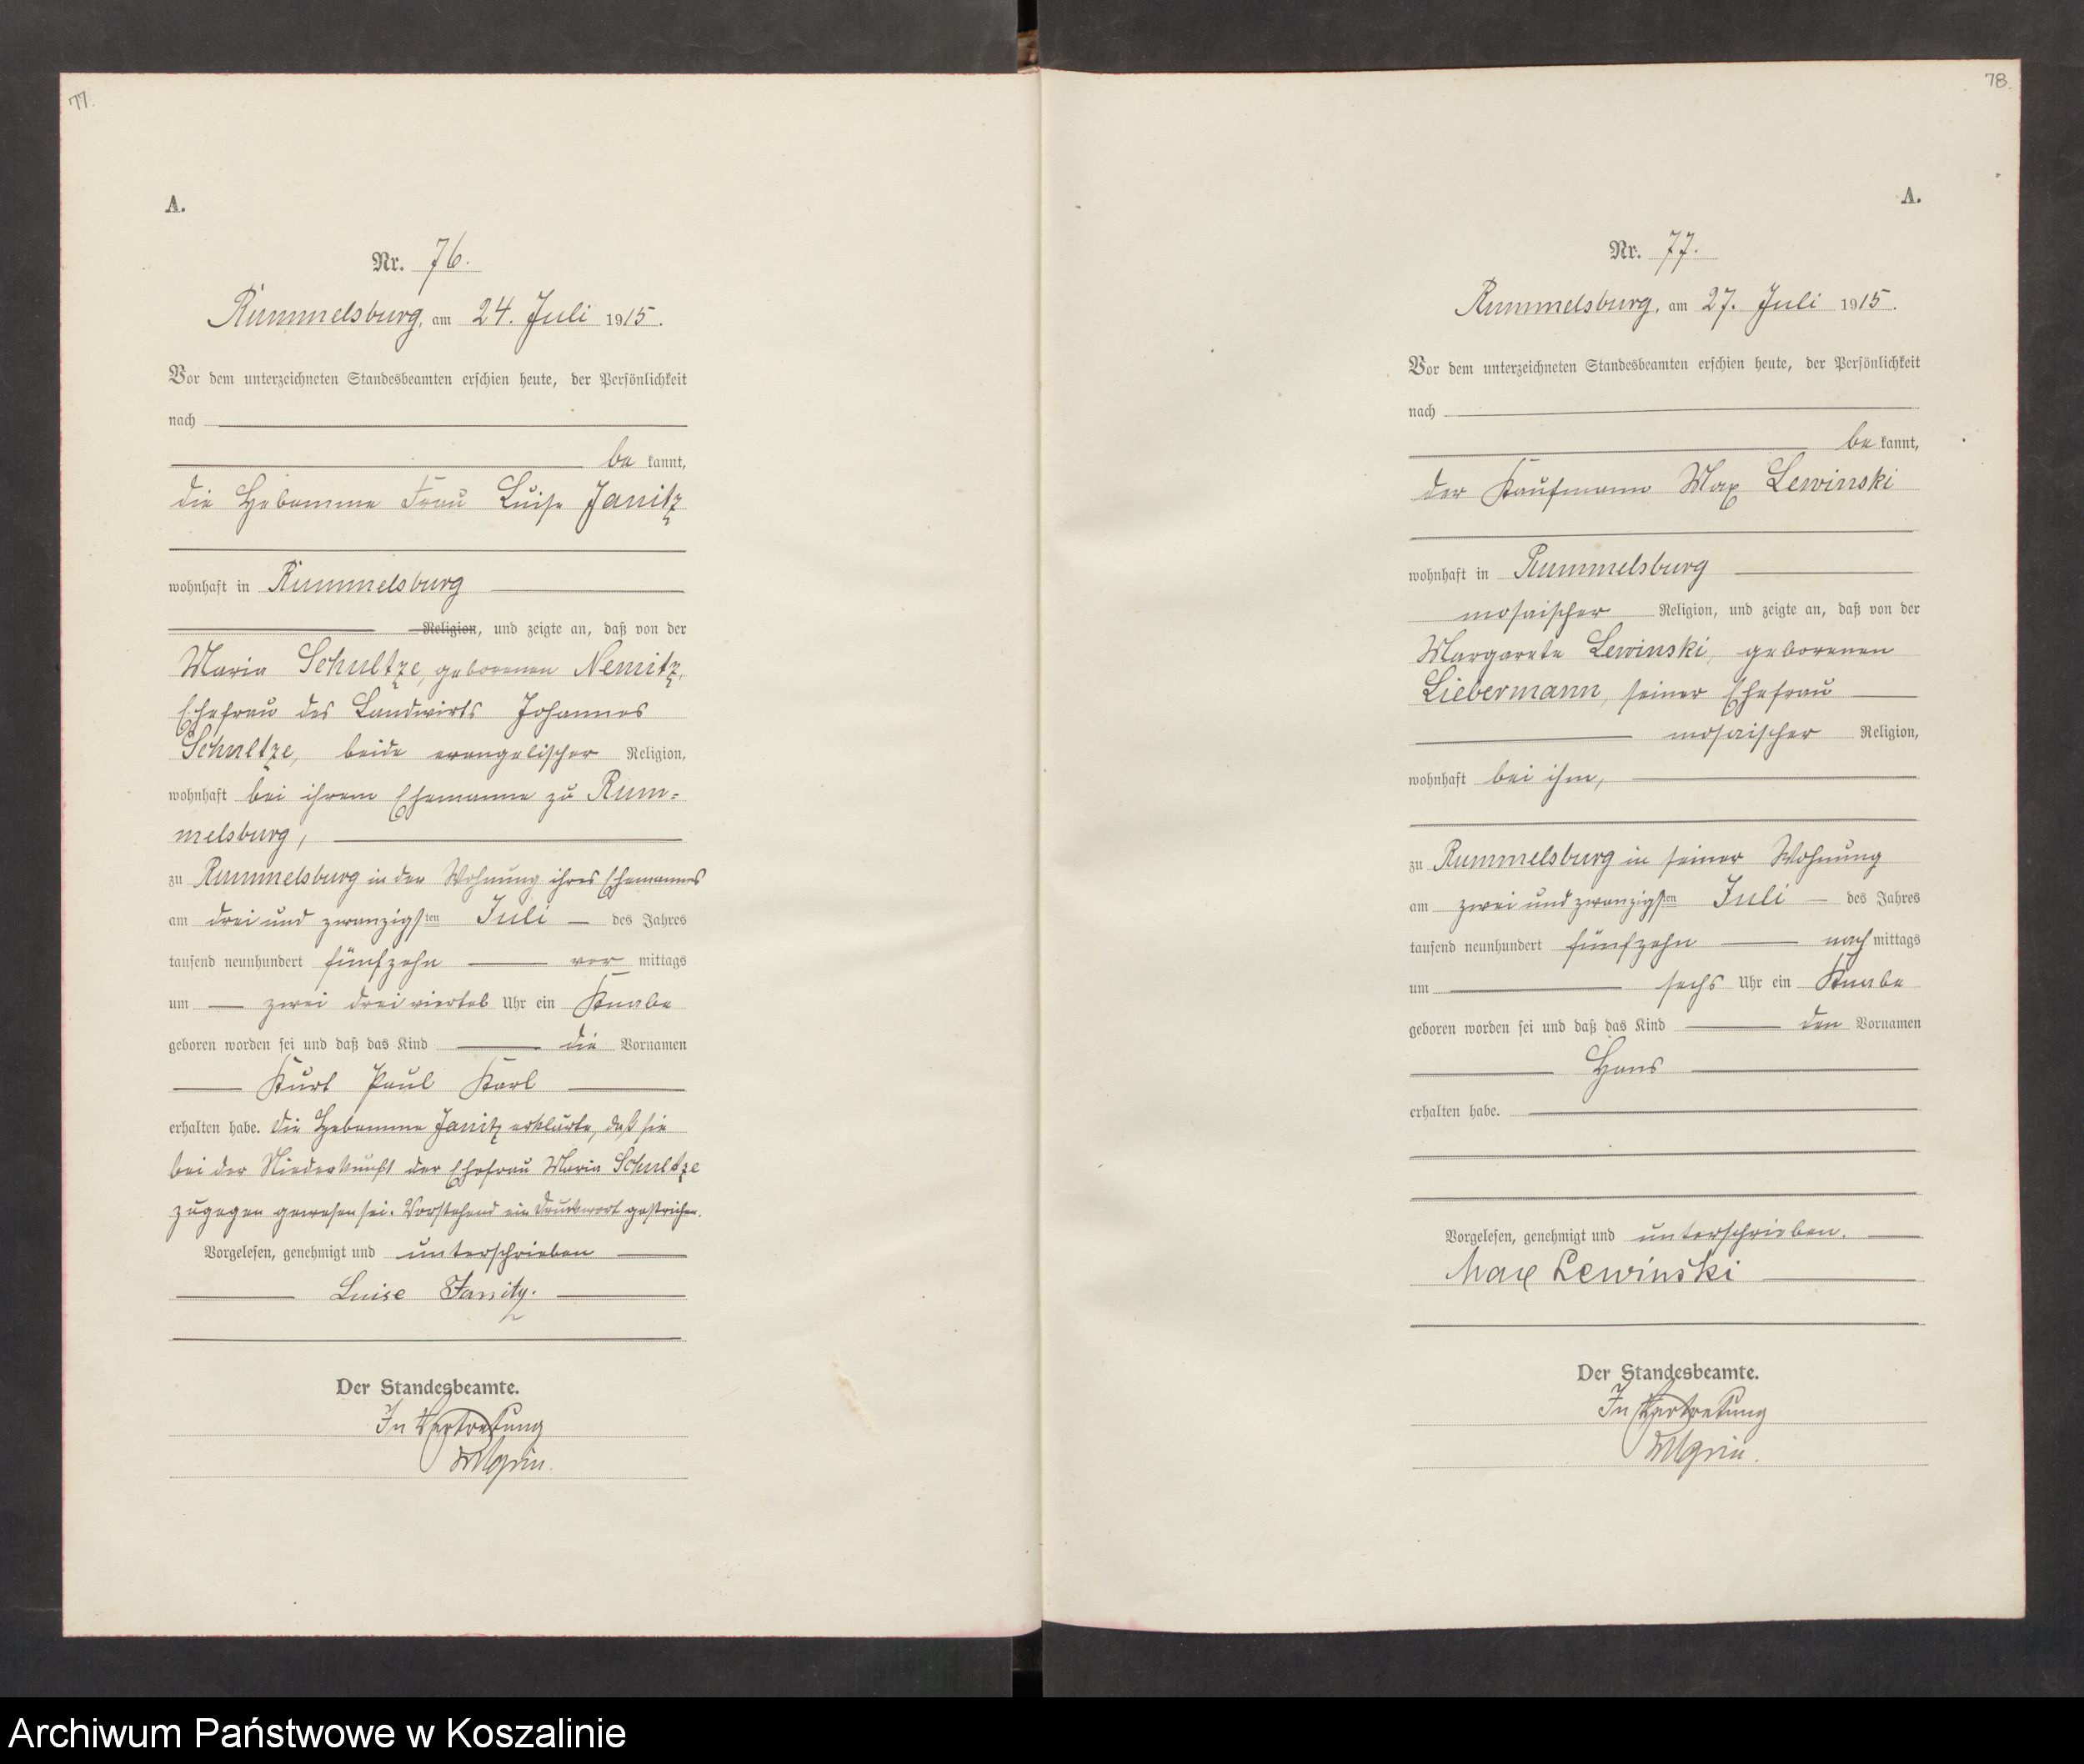 77.
A.
Nr. 76.
Rummelsburg, am 24. Juli 1915.
Vor dem unterzeichneten Standesbeamten erschien heute, der Persönlichkeit
nach
be kannt,
die Hebamme Frau Luise Janitz
wohnhaft in Rummelsburg
Religion, und zeigte an, daß von der
Maria Schultze, geborenen Nemitz,
Ehefrau des Landwirts Johannes
Schultze, beide evangelischer Religion,
wohnhaft bei ihrem Ehemanne zu Rum=
melsburg,
zu Rummelsburg in der Wohnung ihres Ehemannes
am drei und zwanzigsten Juli des Jahres
tausend neunhundert fünfzehn vor mittags
um zwei drei viertel Uhr ein Knabe
geboren worden sei und daß das Kind die Vornamen
Kurt Paul Karl
erhalten habe. Die Hebamme Janitz erklärte, daß sie
bei der Niederkunft der Ehefrau Maria Schultze
zugegen gewesen sei. Vorstehend ein Druckwort gestrichen.
Vorgelesen, genehmigt und unterschrieben
Luise Janitz.
Der Standesbeamte.
In Vertretung
78.
A.
Nr. 77.
Rummelsburg, am 27. Juli 1915.
Vor dem unterzeichneten Standesbeamten erschien heute, der Persönlichkeit
nach
be kannt,
der Kaufmann Max Lewinski
wohnhaft in Rummelsburg
mosaischer Religion, und zeigte an, daß von der
Margarete Lewinski, geborenen
Liebermann, seiner Ehefrau
mosaischer Religion,
wohnhaft bei ihm,
zu Rummelsburg in seiner Wohnung
am zwei und zwanzigsten Juli des Jahres
tausend neunhundert fünfzehn nach mittags
um sechs Uhr ein Knabe
geboren worden sei und daß das Kind den Vornamen
Hans
erhalten habe.
Vorgelesen, genehmigt und unterschrieben.
Max Lewinski
Der Standesbeamte.
In Vertretung
Archiwum Państwowe w Koszalinie